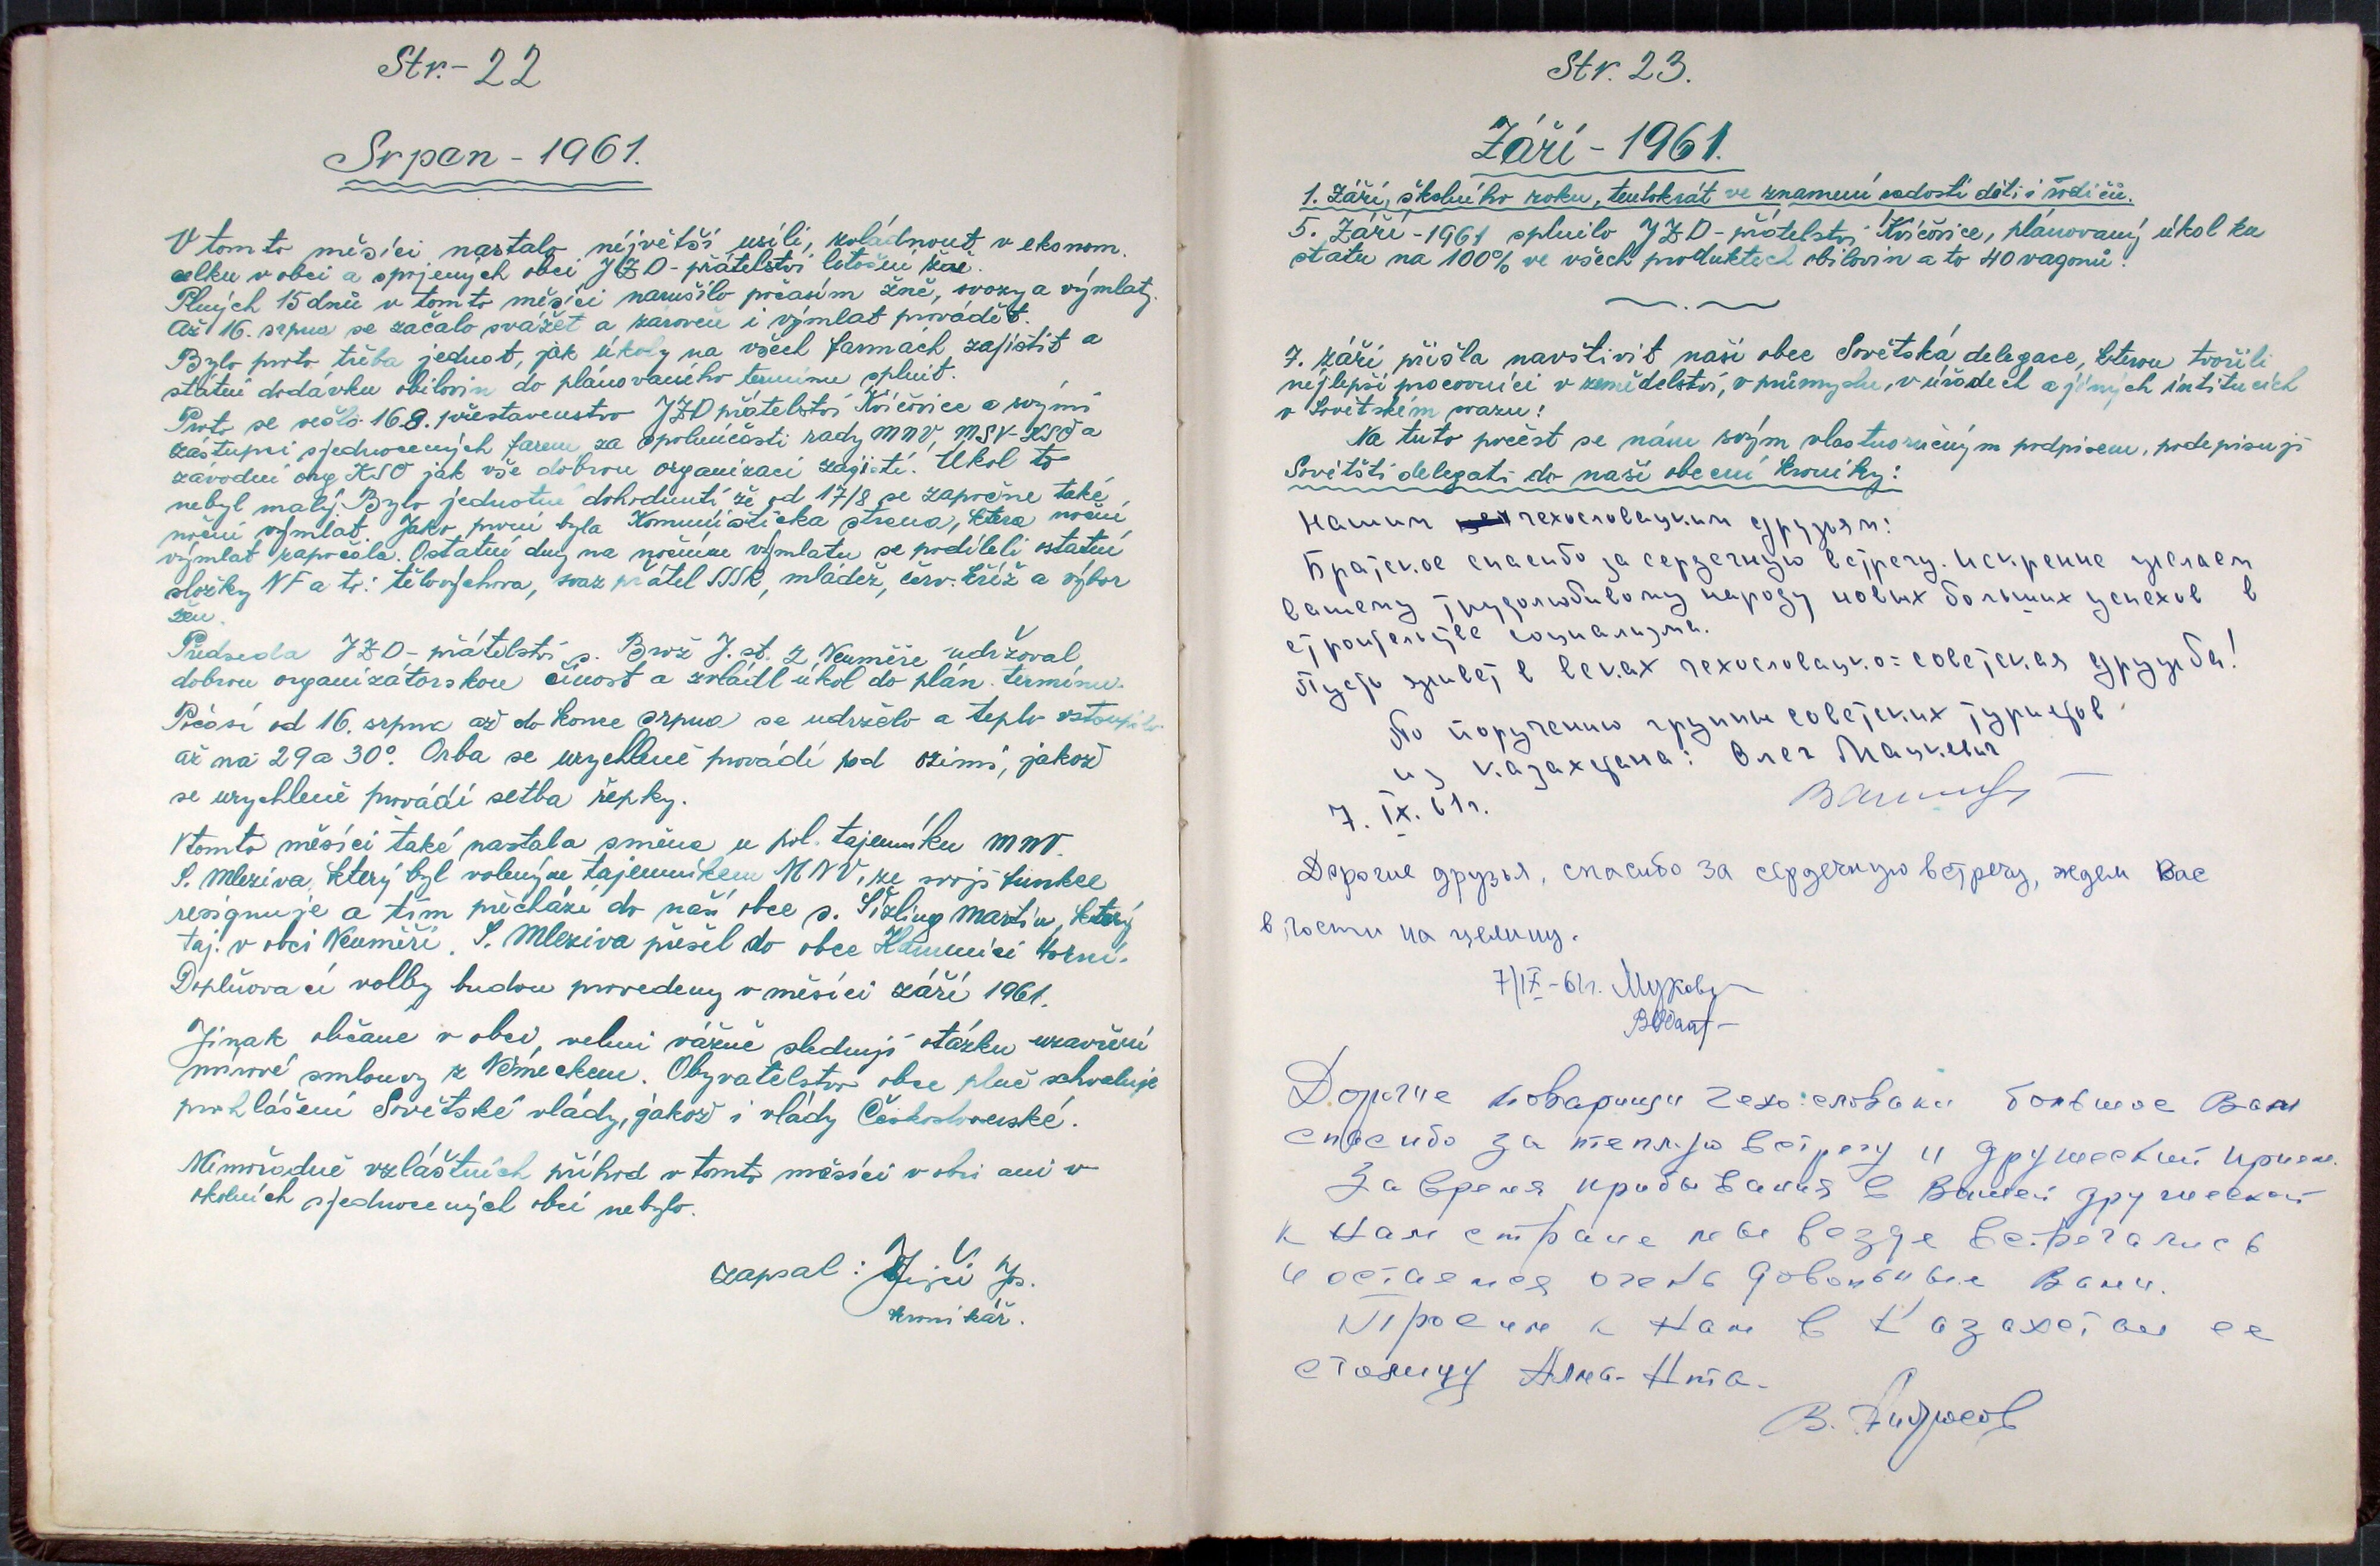 Str.-22
Srpan - 1961.
V tomto měsíci nastalo néjvětší usílí, zvládnout v ekonom.
celku v obci a spojených obcí JZD-přátelství letošní žně.
Plných 15 dnů v tomto měsíci narušilo počasím žně, svozy a výmlaty.
Až 16. srpna se začalo svážet a zároveň i výmlat provádět.
Bylo proto třeba jednat, jak úkoly na všech farmách zajistit a
státní dodávku obilovin do plánovaného termínu splnit.
Proto se sešlo 16.8. představenstvo JZD přátelství Kvíčovice a svými
zástupci sjednocených farem za spoluúčasti rady MNV, MSV-KSČ a
závodní org KSČ jak vše dobrou organizací zajistí. Úkol to
nebyl malý. Bylo jednotné dohodnutí že od 17/8 se započne také
noční výmlat. Jako první byla Komunistická strana, která noční
výmlat započala. Ostatní dny na nočním výmlatu se podíleli ostatní
složky NF a to: tělovýchova, svaz přátel SSSR, mládež, červ. kříž a výbor
žen.
Předseda JZD-přátelství s. Brož J. st. z Neuměře udržoval
dobrou organizátorskou činost a zvládl úkol do plán. termínu.
Počasí od 16. srpna až do konce srpna se udrželo a teplo vstoupilo
až na 29 a 30°. Orba se urychleně provádí pod ozimi, jakož
se urychleně provádí setba řepky.
V tomto měsíci také nastala směna u pol. tajemníku MNV.
S. Mleziva, který byl voleným tajemníkem MNV, ze svojí funkce
resignuje a tím přechází do naší obce s. Šízling Martin, který
taj. v obci Neuměři. S. Mleziva přešel do obce Kamenici Horní.
Doplňovací volby budou provedeny v měsíci září 1961.
Jinak občane v obci, velmi vážně sledují otázku uzavření
mírové smlouvy z Německem. Obyvatelstvo obce plně schvaluje
prohlášení Sovětské vlády, jakož i vlády Československé.
Mimořádně vzláštních příhod v tomto měsíci v obci ani v
okolních sjednocených obcí nebylo.
zapsal: Jiří Js.
kronikář.
Str. 23.
Září - 1961.
1. Září, školního roku, tentokrát ve znamení radosti dětí i rodičů.
5. Září - 1961 splnilo JZD-přátelství Kvíčovice, plánovaný úkol ku
státu na 100% ve všech produktech obilovin a to 40 vagonů.
7. září, přišla navštívit naší obec Sovětská delegace, kterou tvořili
nejlepší pracovníci v zemědělství, v průmyslu, v úřadech a jíných intitucích
v Sovětském svazu!
Na tuto počést se nám svým vlastnoručným podpisem, podepisují
Sovětští delegáti do naší obecní kroniky:
Нашим чехословацким друзьям!
Братское спасибо за сердечную встречу. Искренне желаем
вашему трудолюбивому народу новых больших успехов в
строительстве социализма.
Пусть живет в веках чехословацко=советская дружба!
По поручению группы советских туристов
из Казахстана: Олег Мацкевич
7. IX. 61 г.
Дорогие друзья, спасибо за сердечную встречу, ждем Вас
в гости на целину.
7/IX-61г.
Дорогие товарищи чехословаки большое Вам
спасибо за теплую встречу и дружеский прием.
За время прибывания в Вашей дружеской
к нам стране мы везде встречались
и остаемся очень довольные Вами.
Просим к нам в Казахстан ее
столицу Алма-Ата.